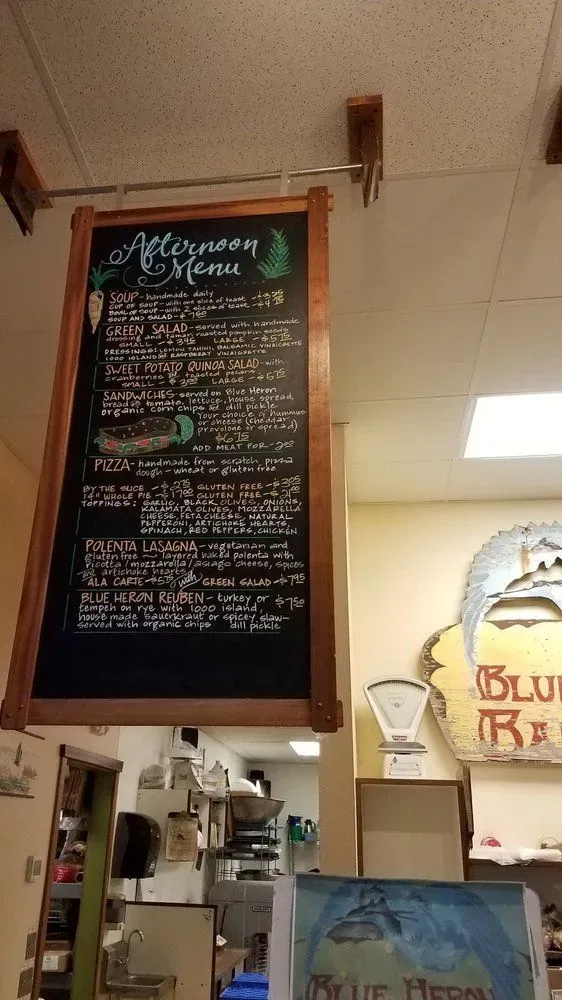 Afternoon
Menu
SOUP - handmade daily
CUP OF SOUP - with one slice of toast - $3.75
BOWL OF SOUP - with 2 slices of toast - $4.75
SOUP AND SALAD - $7.50
GREEN SALAD - served with handmade
dressing and tamari roasted pumpkin seeds
SMALL - $3.95 LARGE - $5.75
DRESSINGS: LEMON TAHINI, BALSAMIC VINAIGRETTE
1000 ISLAND or RASPBERRY VINAIGRETTE
SWEET POTATO QUINOA SALAD - with
cranberries & toasted pecans
SMALL - $3.95 LARGE - $5.75
SANDWICHES - served on Blue Heron
bread w/ tomato, lettuce, house spread,
organic corn chips & dill pickle
Your choice of hummus
or cheese (cheddar,
provolone or spread)
$6.75
ADD MEAT FOR - 2.00
PIZZA - handmade from scratch pizza
dough - wheat or gluten free
BY THE SLICE - $2.75 GLUTEN FREE - $3.25
14" WHOLE PIE - $17.00 GLUTEN FREE - $21.00
TOPPINGS: GARLIC, BLACK OLIVES, ONIONS,
KALAMATA OLIVES, MOZZARELLA
CHEESE, FETA CHEESE, NATURAL
PEPPERONI, ARTICHOKE HEARTS,
SPINACH, RED PEPPERS, CHICKEN
POLENTA LASAGNA - vegetarian and
gluten free ~ layered baked polenta with
ricotta/mozzarella/asiago cheese, spices
and artichoke hearts
ALA CARTE - $5.75 with GREEN SALAD - $7.95
BLUE HERON REUBEN - turkey or - $7.50
tempeh on rye with 1000 island,
house made sauerkraut or spicey slaw -
served with organic chips dill pickle
BLUE
BA
BLUE HERON